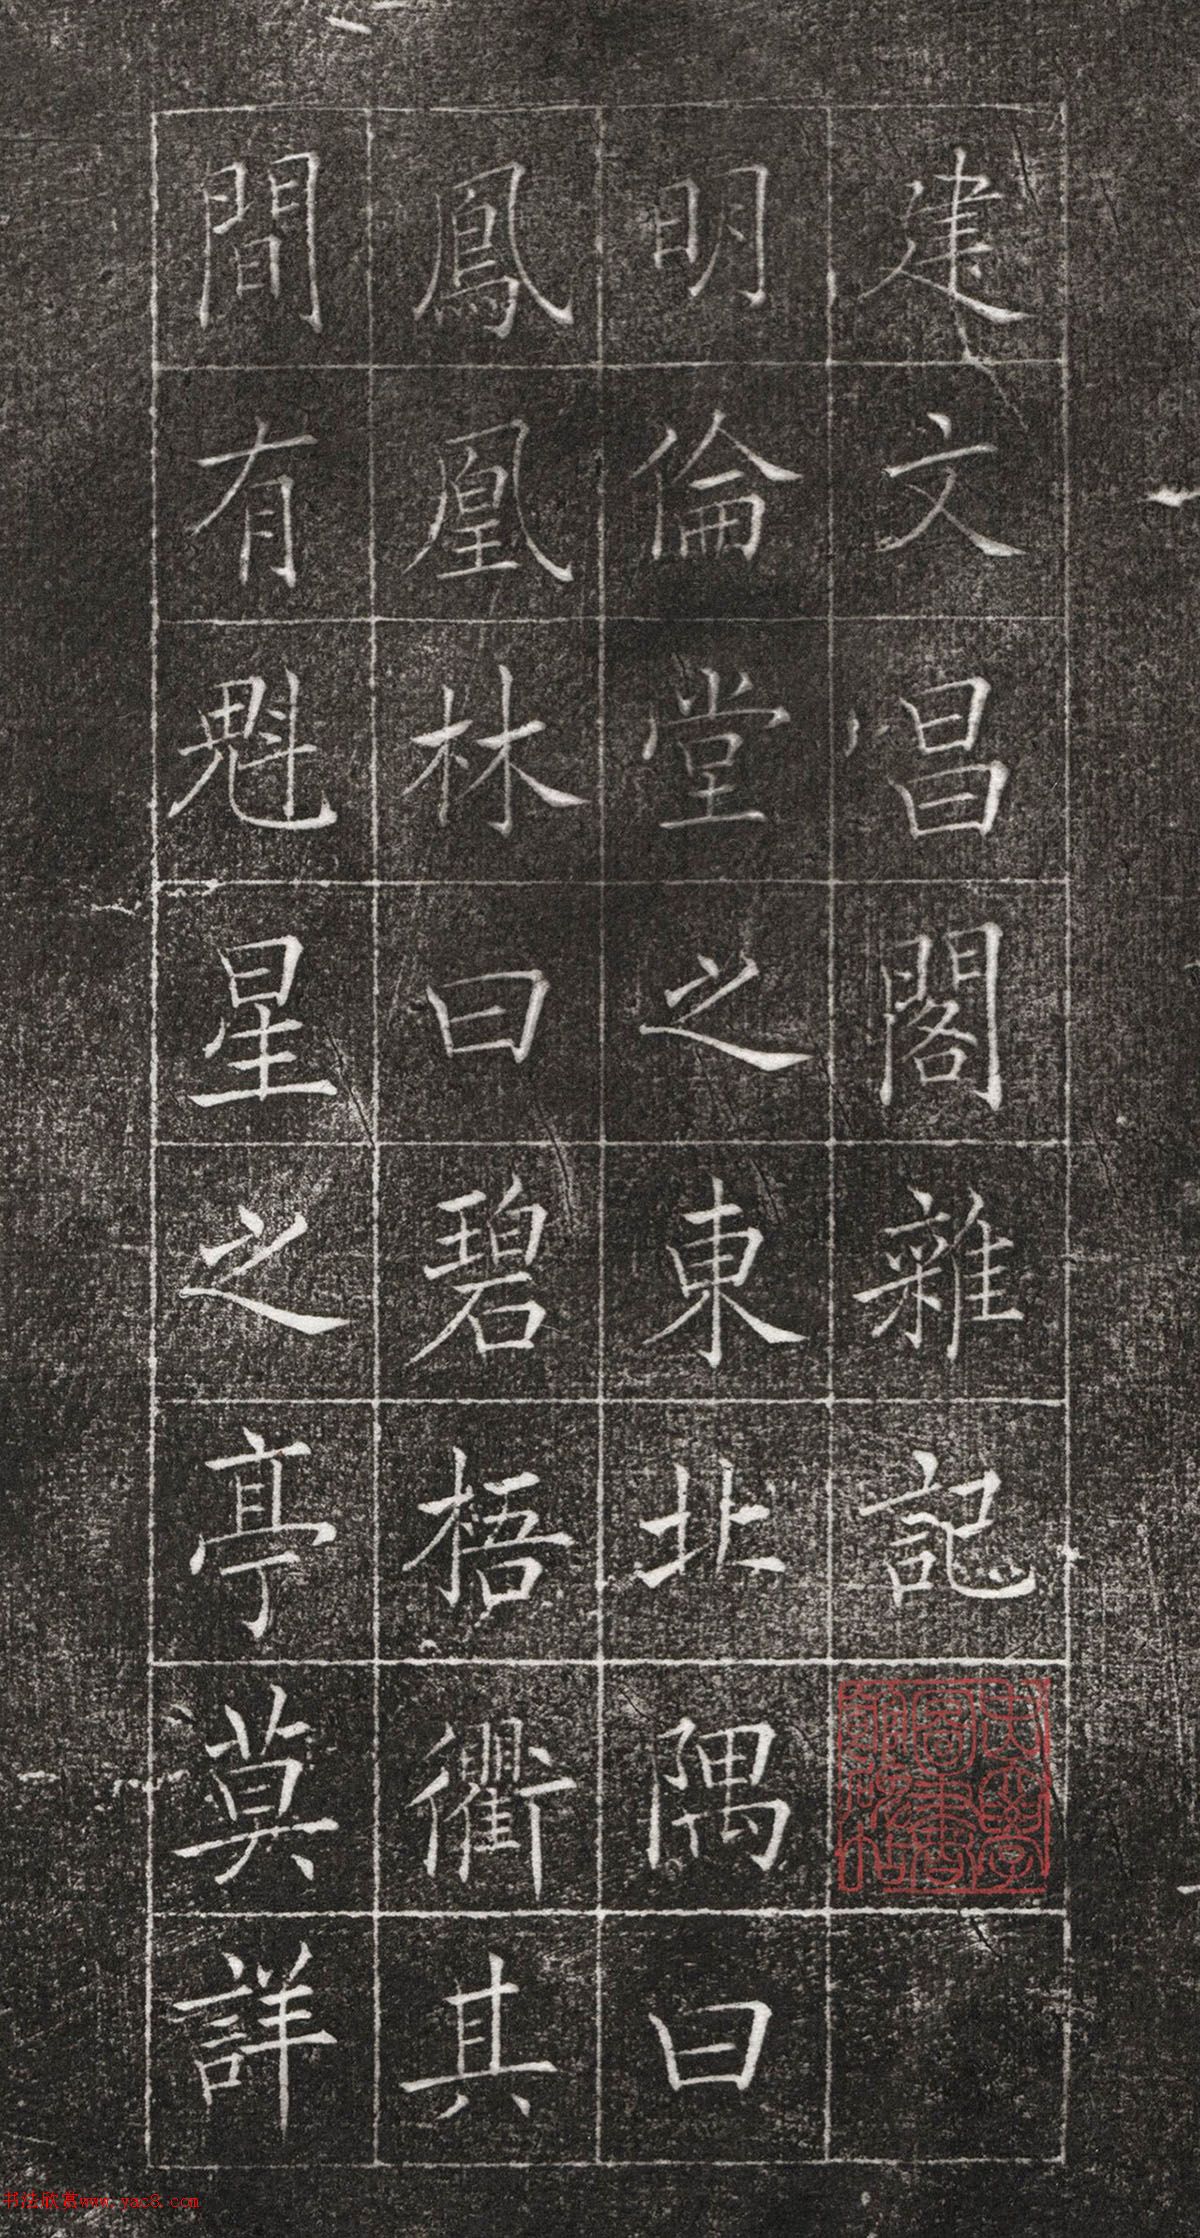 建文昌閣雜記
明倫堂之東北隅曰
鳳凰林曰碧梧衢其
間有魁星之亭莫詳
书法欣赏www.yac8.com